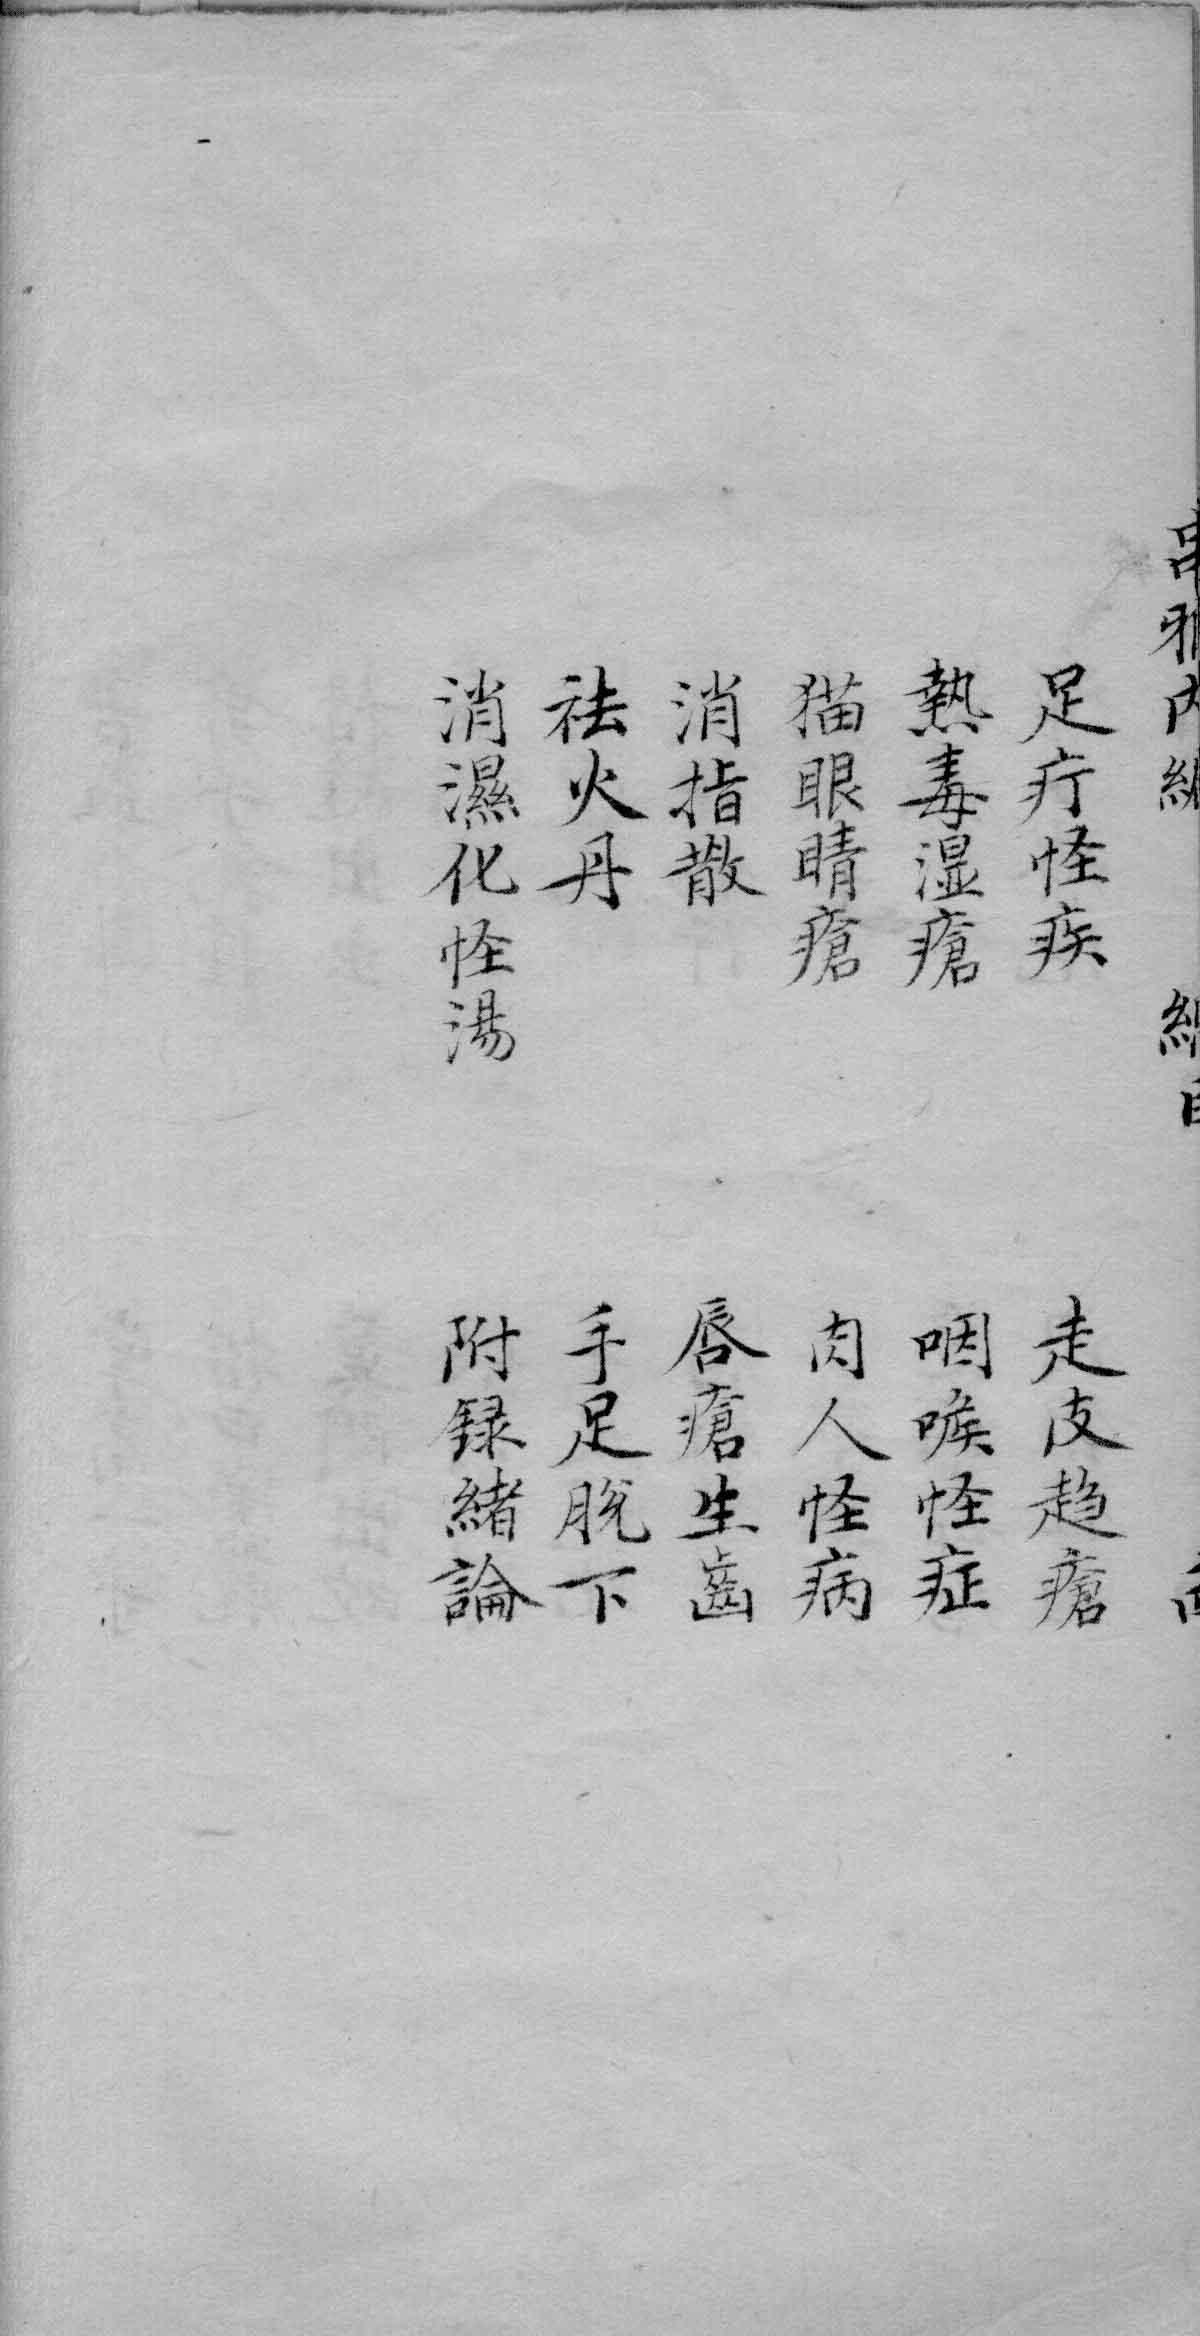 串雅内編 總目
足疔怪疾 走皮趋瘡
熱毒湿瘡 咽喉怪症
猫眼睛瘡 肉人怪病
消指散 唇瘡生齒
祛火丹 手足脫下
消濕化怪湯 附録緒論